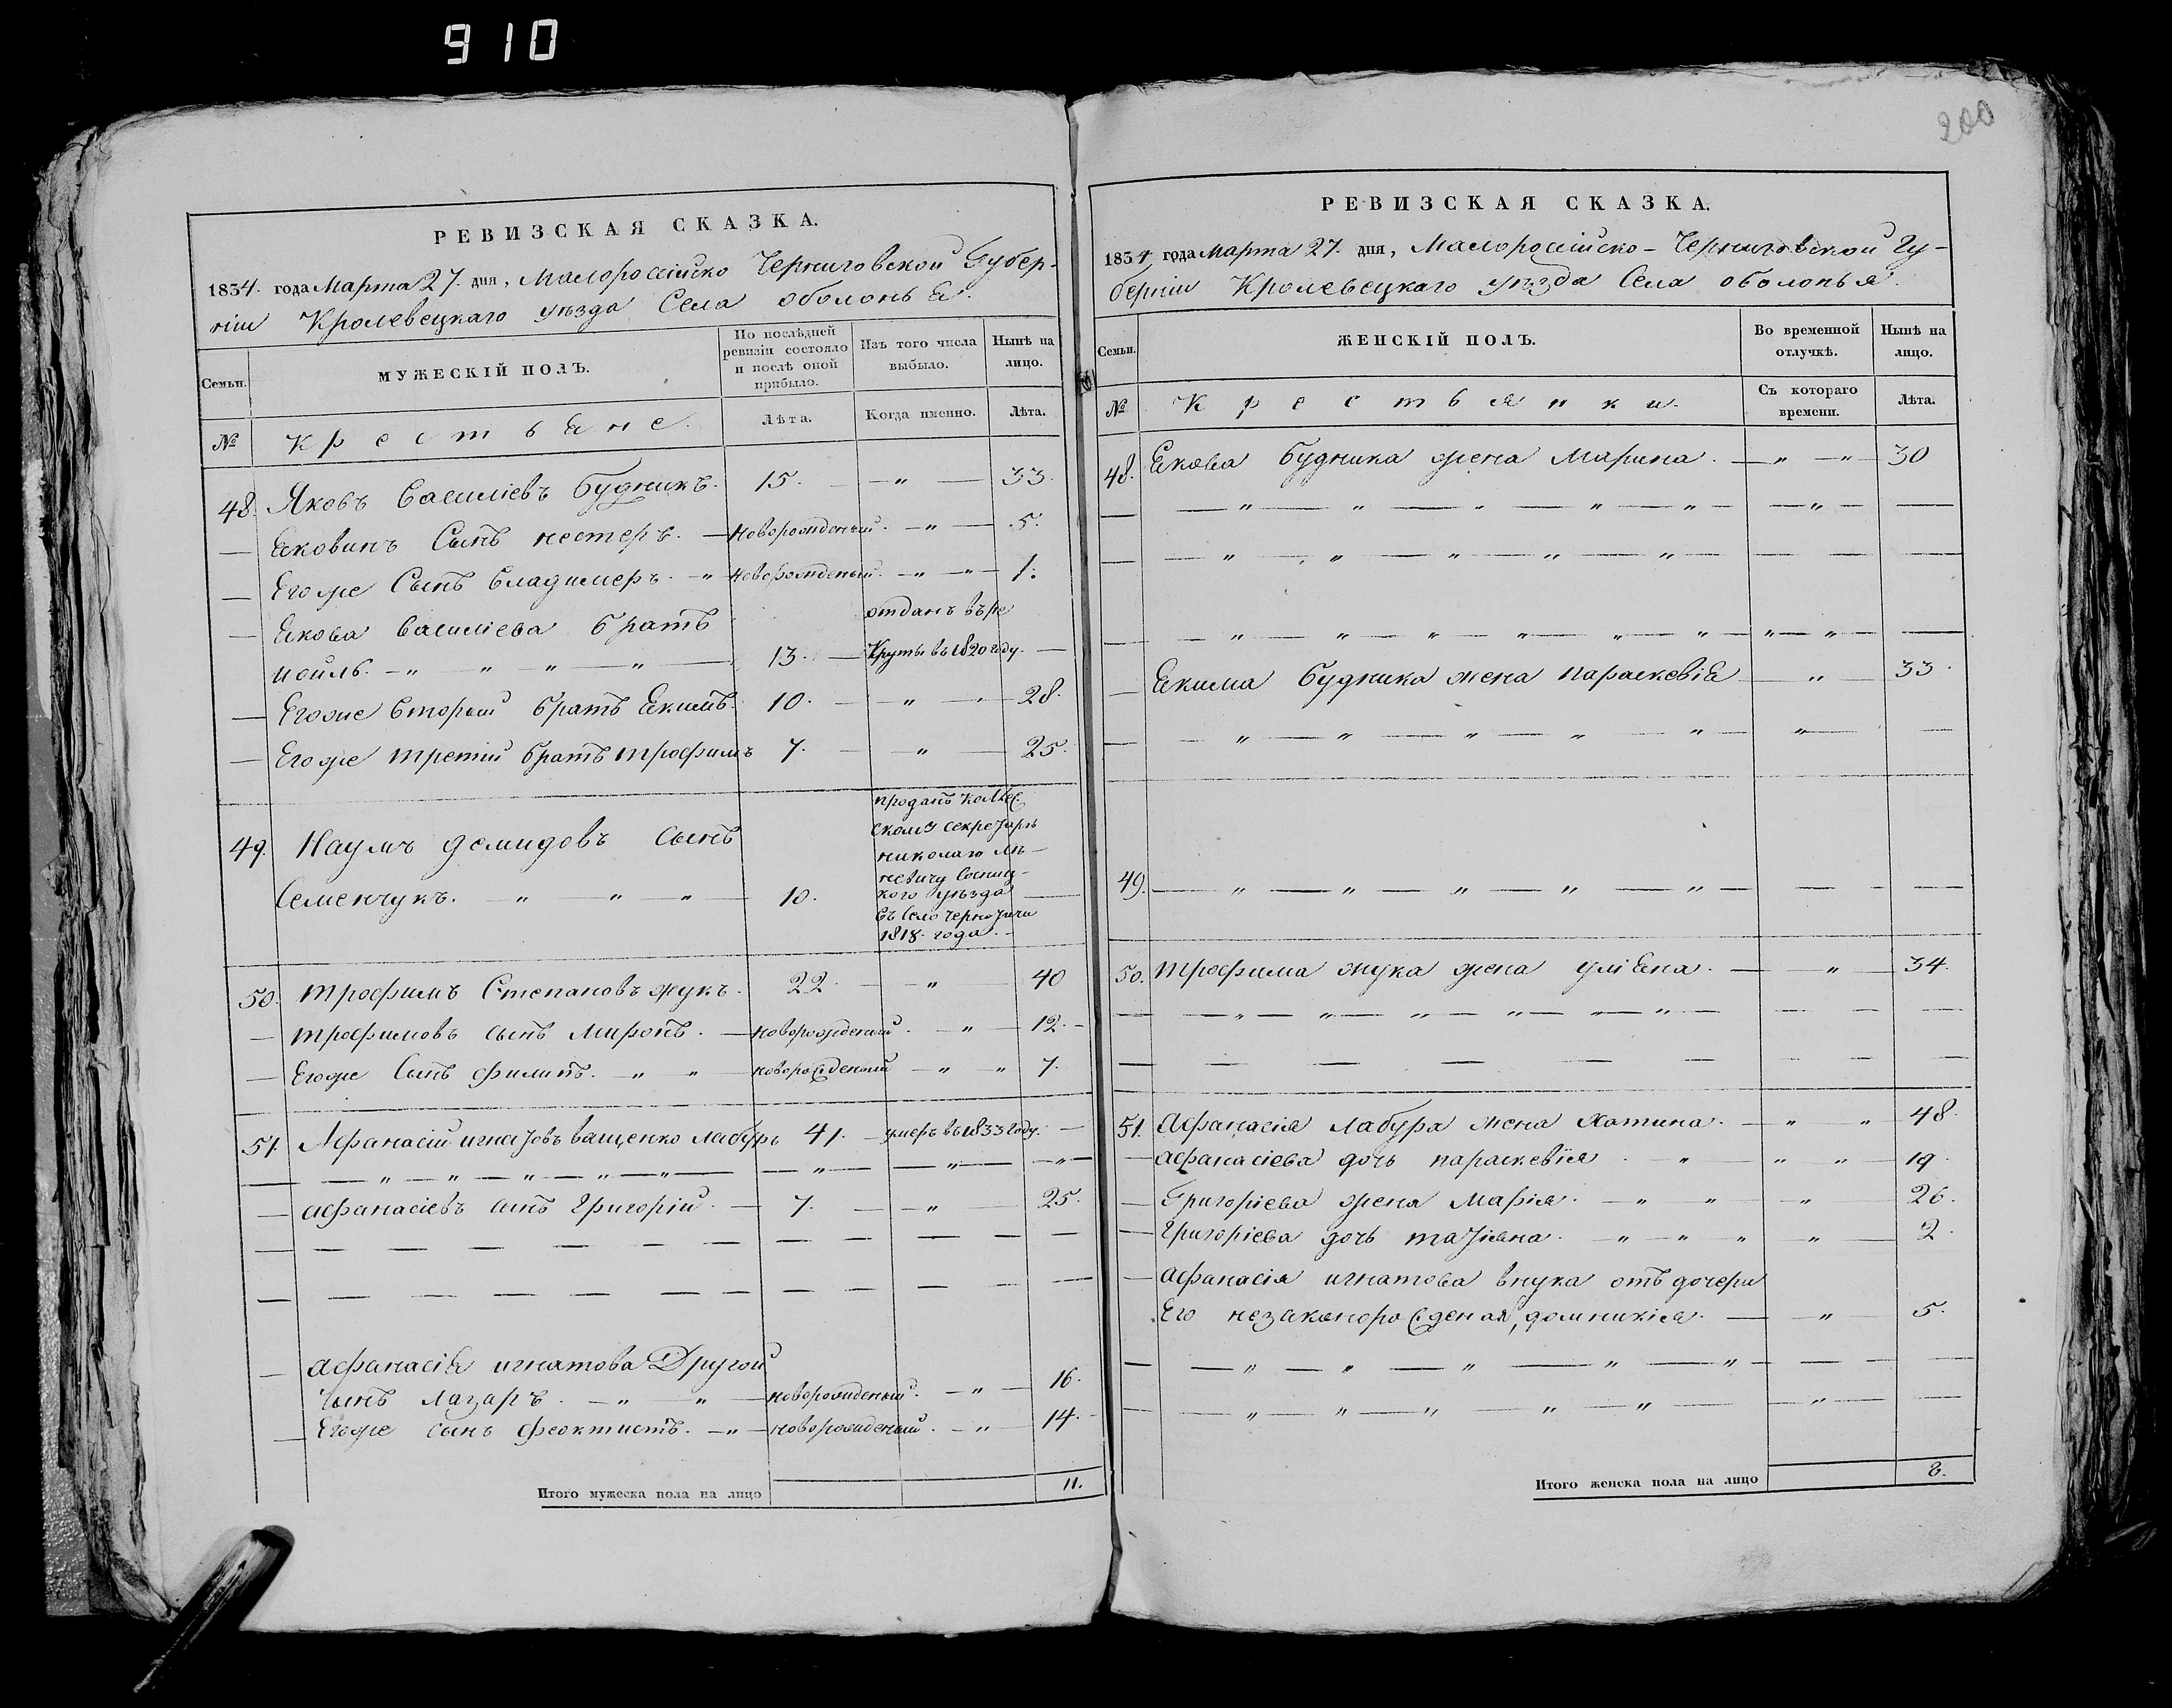 910
200
РЕВИЗСКАЯ СКАЗКА.
1834. года Марта 27. дня, Малороссійско Черниговской Губер-
ніи Кролевецкаго уѣзда Села оболонья.
Семьи.
МУЖЕСКІЙ ПОЛЪ.
По послѣдней ревизіи состояло и послѣ оной прибыло.
Изъ того числа выбыло.
Нынѣ на лицо.
№
Крестьяне.
Лѣта.
Когда именно.
Лѣта.
48. Яковъ Василіевъ будникъ. 15. — " — 33.
— Яковинъ Сынъ нестеръ. — новорожденый. — " — 5.
— Егоже Сынъ Владимеръ. " новорожденый. — " — " — 1.
— Якова василіева братъ отданъ въ ре
иоиль. — " " " — " — 13. — круты въ 1820 году. —
— Егоже Вторый братъ Якимъ. 10. — " — 28.
— Егоже третій братъ трофимъ 7. — " — 25.
проданъ
скому секретарю
николаю
49. Наумъ демидовъ сынъ
Семенчукъ. — " — " — " — 10. кого уѣзда —
въ Село
1818. года. —
50. трофимъ Степановъ жукъ. 22. — " — 40
— трофимовъ сынъ миронъ. — новорожденый. — " — 12. —
— Егоже Сынъ филипъ. — " " — новорожденый — " " 7.
51. Афанасій игнатовъ ващенко лабуръ 41. — умеръ въ 1833 году. —
— — " — " — " — " — " — " — — " — — " — — " —
— афанасіевъ сынъ Григорій. — 7. — " — 25.
— афанасія игнатова Другой
Сынъ лазаръ. — " — " — новорожденый. — " — 16.
— Егоже сынъ феоктистъ. — " — новорожденый. — " — 14. —
Итого мужеска пола на лицо 11.
РЕВИЗСКАЯ СКАЗКА.
1834 года Марта 27. дня, Малороссійско-Черниговской Гу-
берніи Кролевецкаго уѣзда Села оболонья.
Семьи.
ЖЕНСКІЙ ПОЛЪ.
Во временной отлучкѣ.
Нынѣ на лицо.
№
Крестьянки.
Съ котораго времени.
Лѣта.
48. Якова будника жена Марина. — " — " — 30
— — " — " — " — " — " — — " — —
— — " — " — " — " — " — — — —
— — " — " — " — " — " — " — " — " — —
— Якима будника жена параскевія — " — 33.
— — " — " — " — " — " — " — —
49. — " — " — " — " — " — — — —
50. трофима жука жена уліяна. — " — 34.
— — " — " — " — " — " — " — — — —
— — — — — — — — —
51. афанасія лабура жена Хотина. — " " — 48.
— афанасіева дочь параскевія. " " " — 19.
— Григоріева жена Марія. — " " " — 26.
— Григоріева дочь татіяна. — " — " " " — 2.
— афанасія игнатова внука отъ дочери
Его незаконорожденая, домникія. — " — 5.
— — " — " — " — " — " — — — —
— — " — " — " — " — " — — " — —
Итого женска пола на лицо 8.